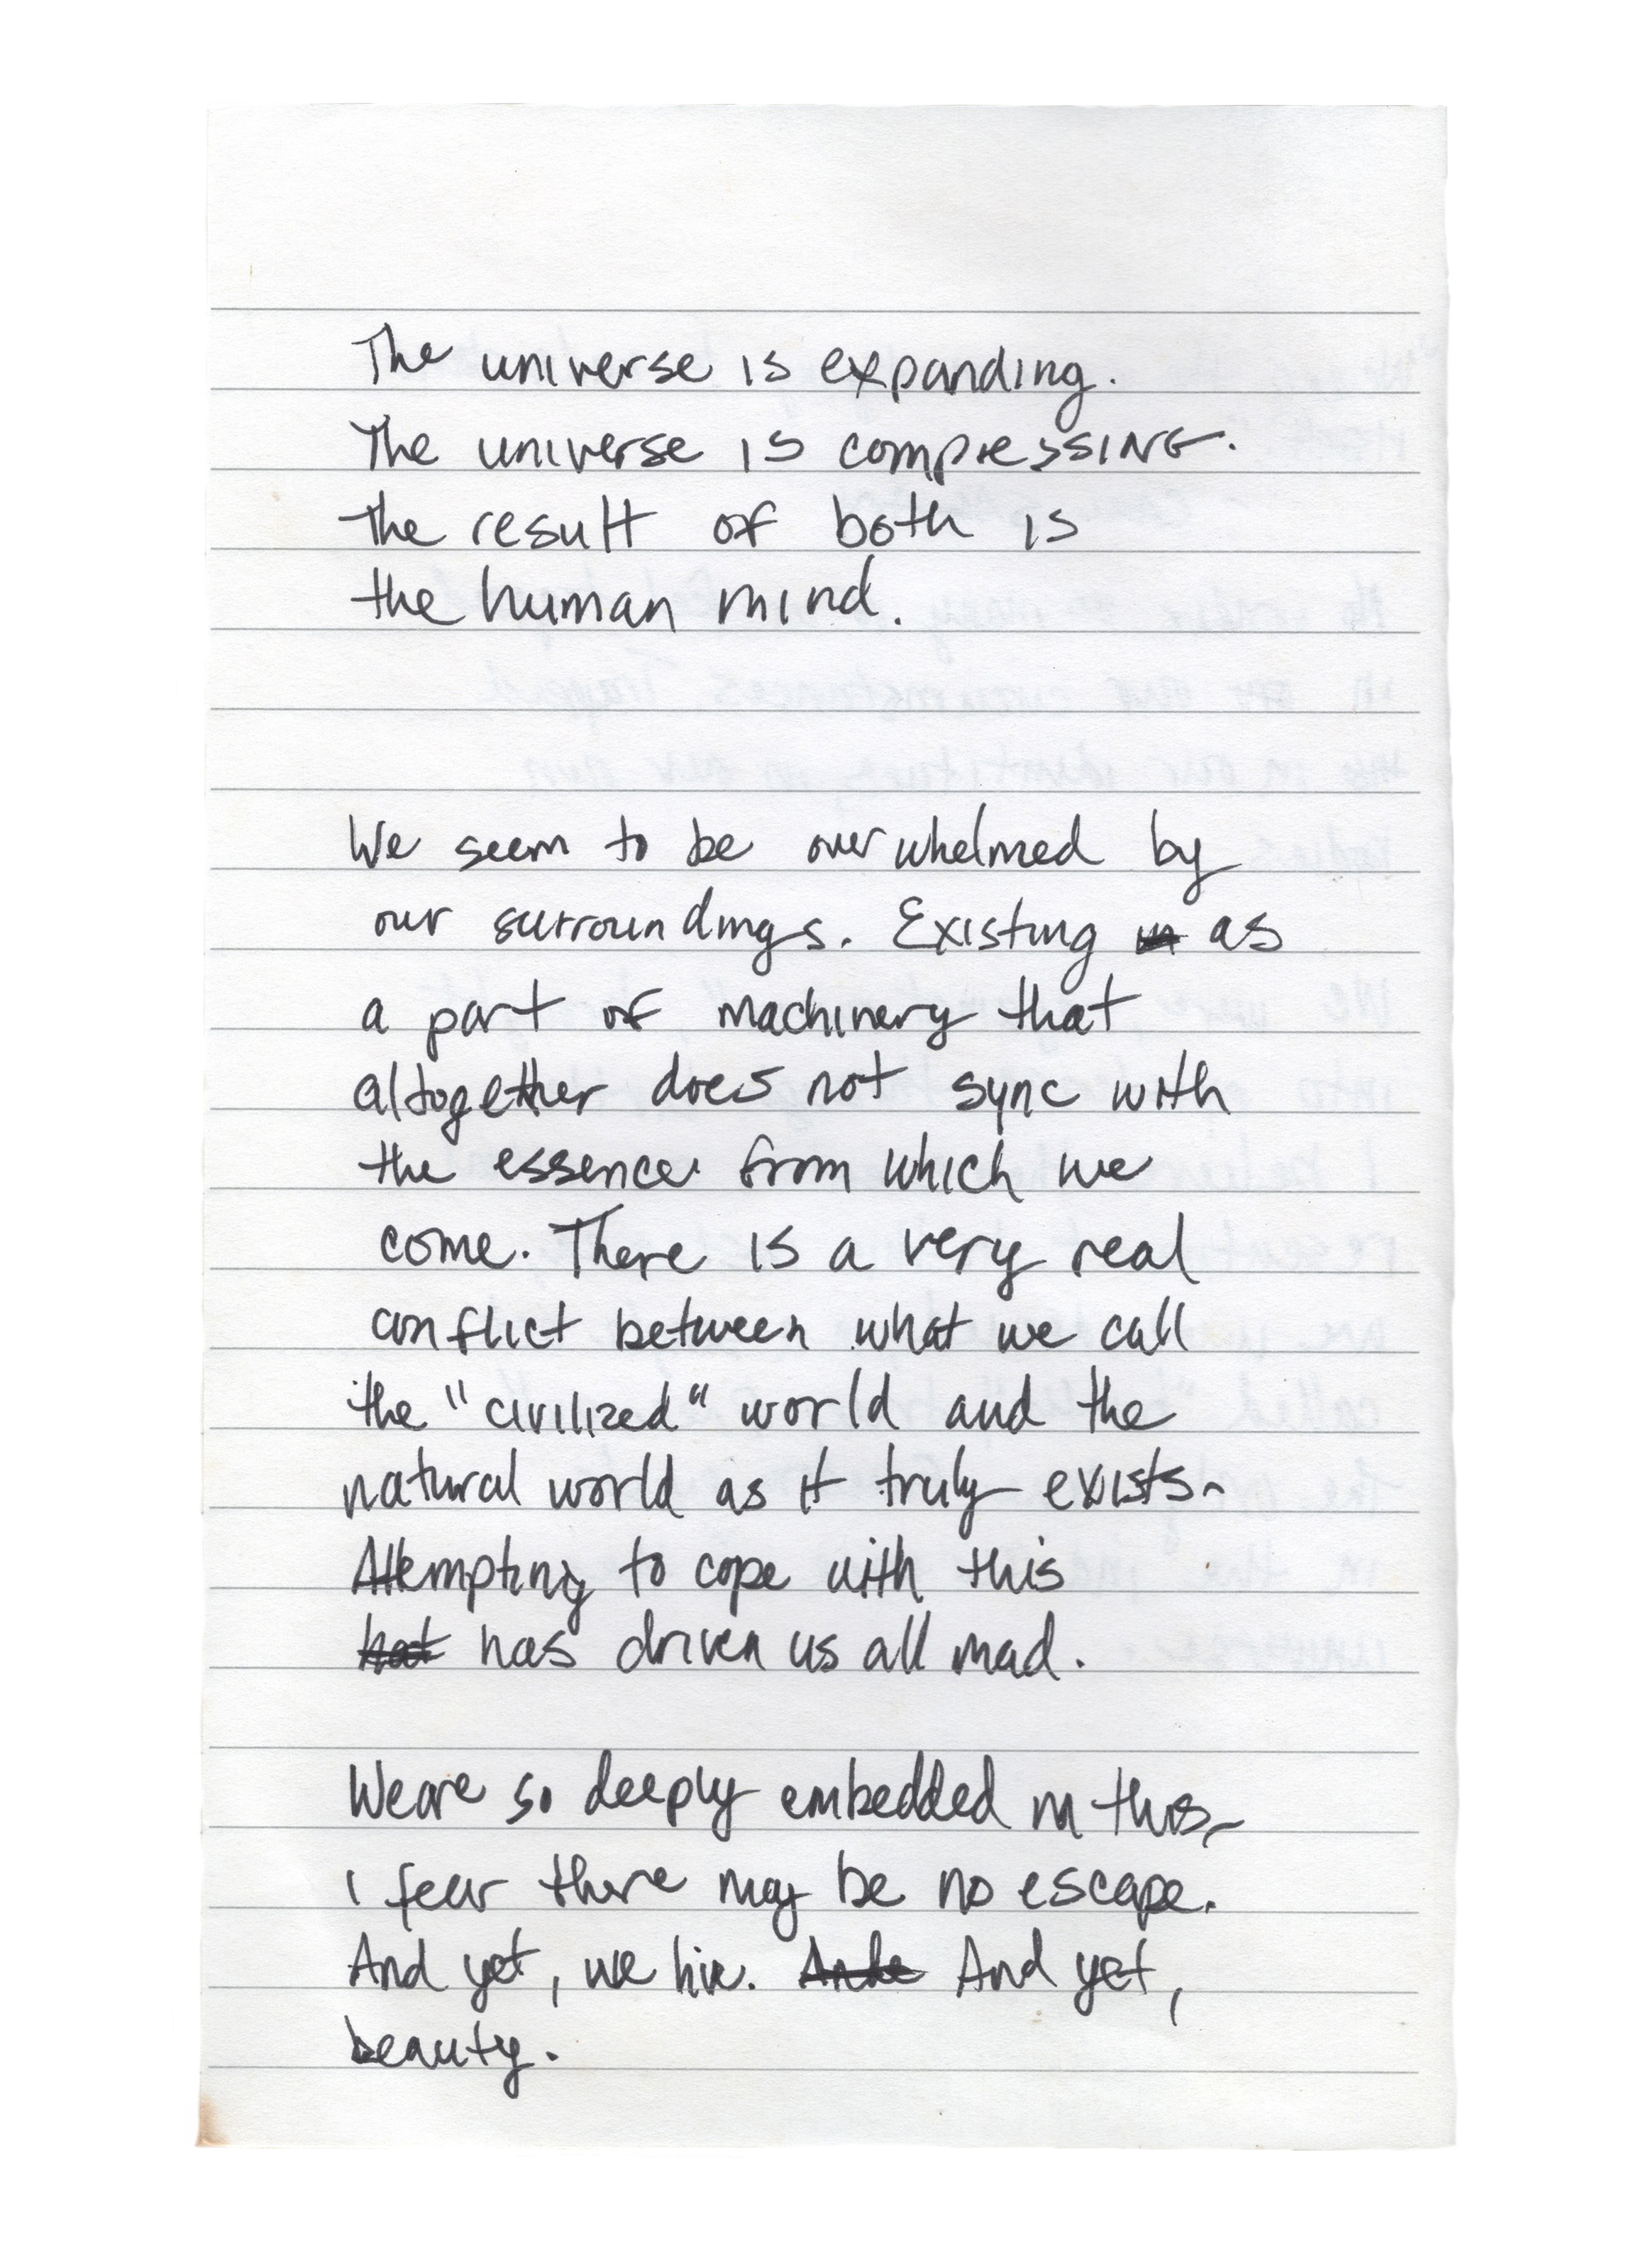 The universe is expanding.
The universe is compressing.
the result of both is
the human mind.
We seem to be overwhelmed by
our surroundings. Existing in as
a part of machinery that
altogether does not sync with
the essence from which we
come. There is a very real
conflict between what we call
the "civilized" world and the
natural world as it truly exists.
Attempting to cope with this
hat has driven us all mad.
We are so deeply embedded in this,
I fear there may be no escape.
And yet, we live. And yet,
beauty.